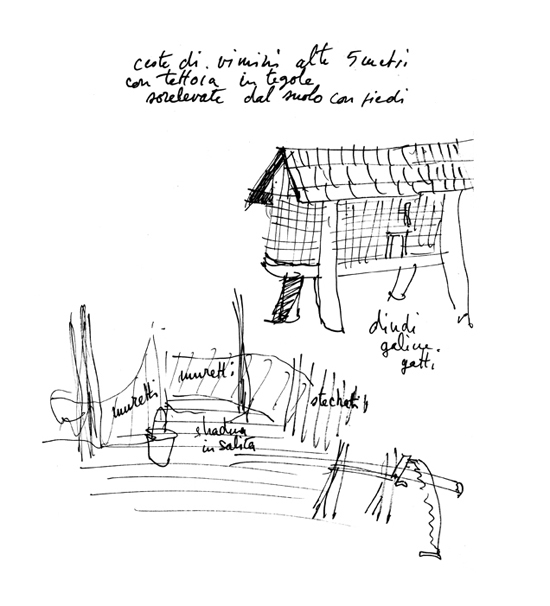 ceste di vimini alte 5 metri
con tettoia in tegole
sorelevate dal suolo con piedi
dindi
galine
gatti
muretti
muretti
stechati
stradina
in salita